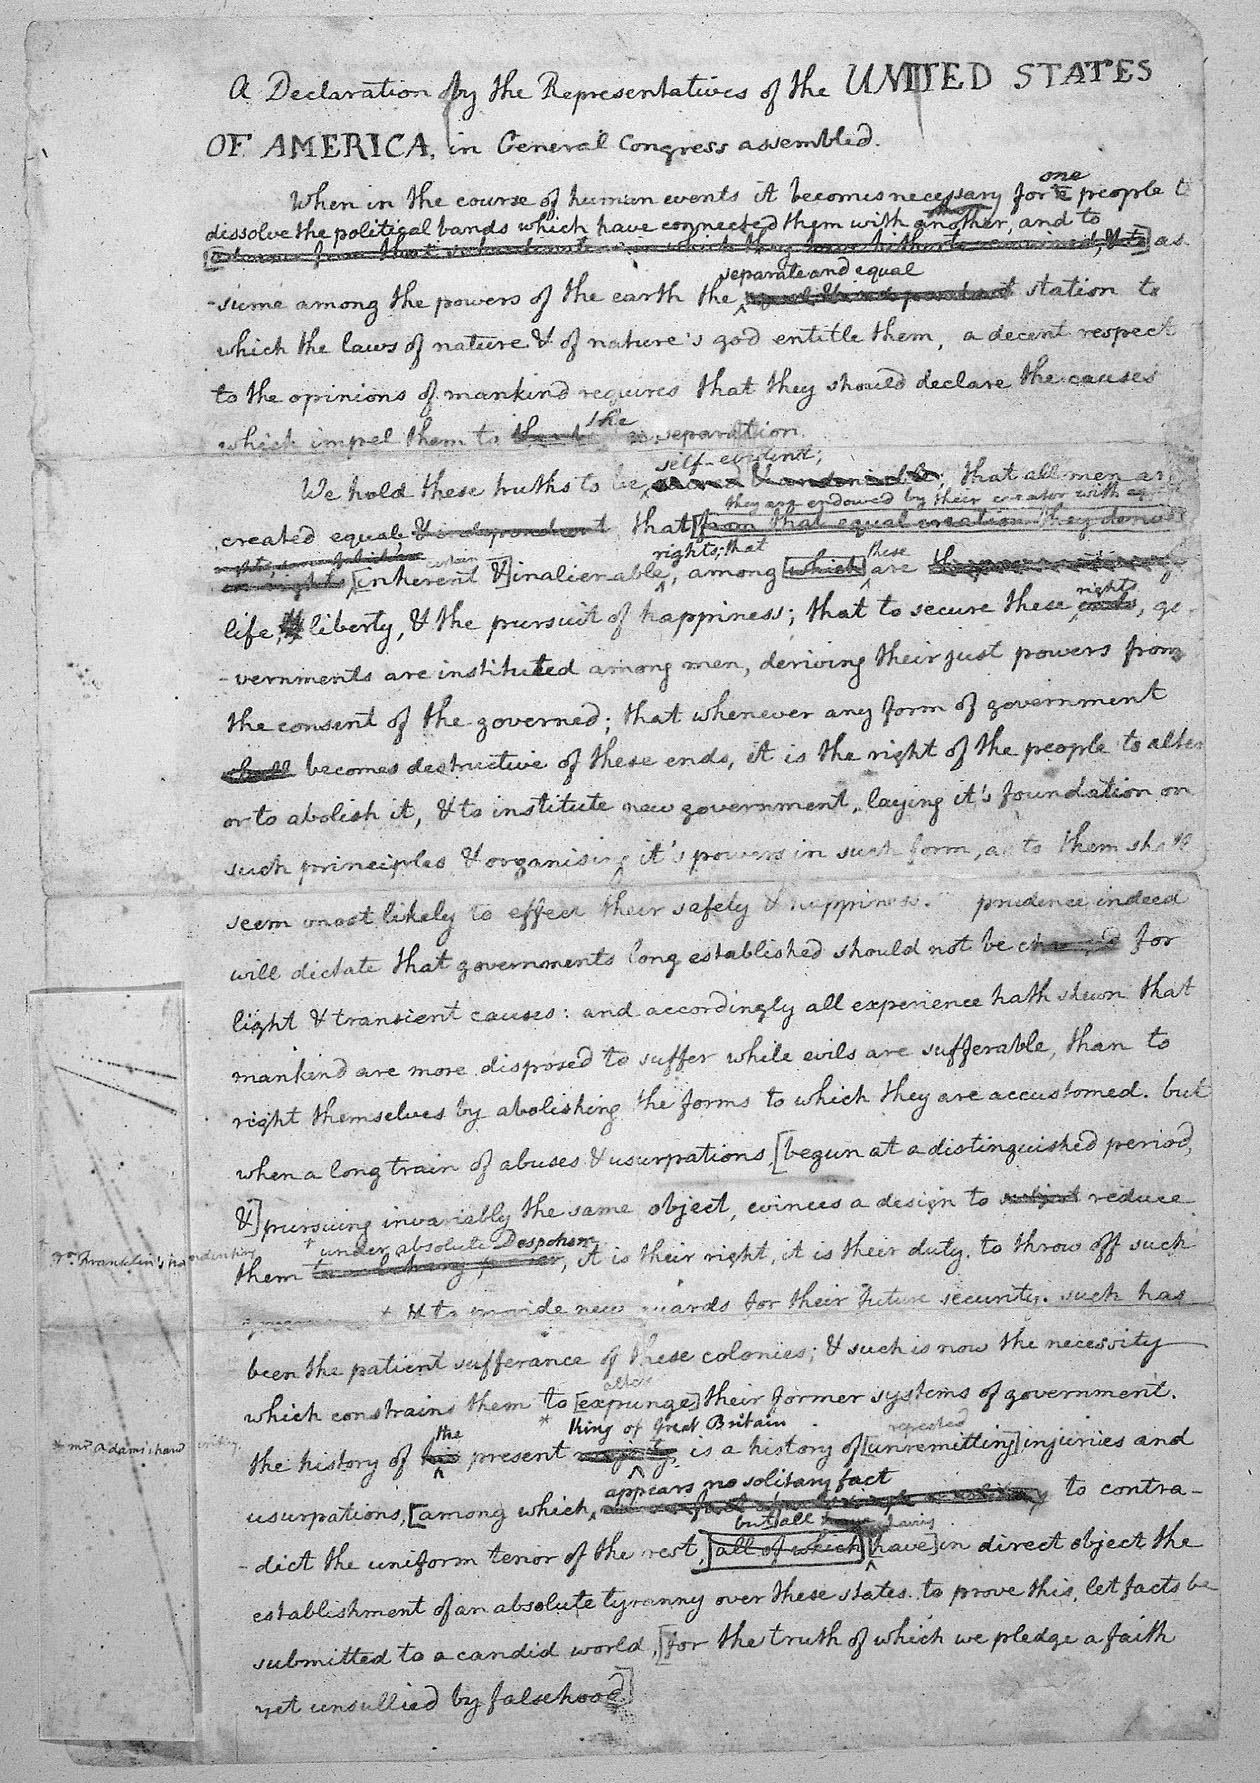 A Declaration by the Representatives of the UNITED STATES
OF AMERICA, in General Congress assembled.
one
When in the course of human events it becomes necessary for a people to
dissolve the political bands which have connected them with another, and to
as-
separate and equal
-sume among the powers of the earth the station to
which the laws of nature & of nature's god entitle them, a decent respect
to the opinions of mankind requires that they should declare the causes
the
which impel them to separation.
self-evident;
We hold these truths to be sacred & undeniable; that all men are
they are endowed by their creator with
created equal & independent, that [from that equal creation they derive
rights; that these
certain
[inherent &] inalienable, among [which] are
rights
life, & liberty, & the pursuit of happiness; that to secure these ends, go-
-vernments are instituted among men, deriving their just powers from
the consent of the governed; that whenever any form of government
shall becomes destructive of these ends, it is the right of the people to alter
or to abolish it, & to institute new government, laying it's foundation on
such principles & organising it's powers in such form, as to them shall
seem most likely to effect their safety & happiness. prudence indeed
will dictate that governments long established should not be changed for
light & transient causes: and accordingly all experience hath shewn that
mankind are more disposed to suffer while evils are sufferable, than to
right themselves by abolishing the forms to which they are accustomed. but
when a long train of abuses & usurpations, [begun at a distinguished period,
&] pursuing invariably the same object, evinces a design to subject reduce
+ under absolute Despotism
Dr. Franklin's handwriting
them to arbitrary power, it is their right, it is their duty, to throw off such
+ & to provide new guards for their future security. such has
been the patient sufferance of these colonies; & such is now the necessity
alter
which constrains them to [expunge] their former systems of government.
the * King of Great Britain repeated
* Mr Adams' handwriting
the history of his present majesty, is a history of [unremitting] injuries and
appears no solitary fact
usurpations, [among which, to contra-
but all have having
-dict the uniform tenor of the rest, [all of which] [have] in direct object the
establishment of an absolute tyranny over these states. to prove this, let facts be
submitted to a candid world, [for the truth of which we pledge a faith
yet unsullied by falsehood]